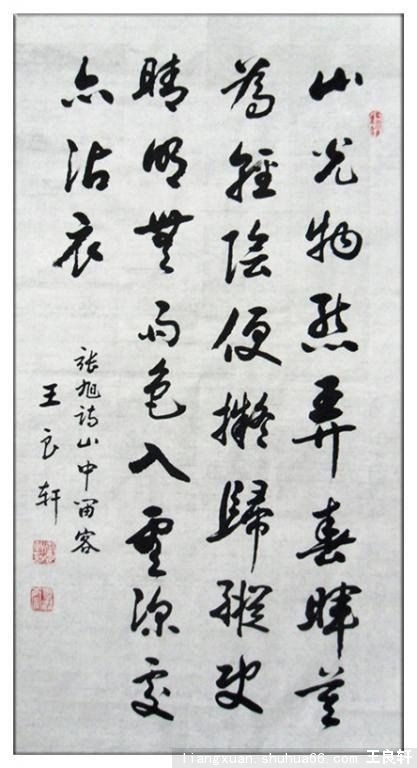 山光物態弄春暉莫
為輕陰便擬歸縱使
晴明無雨色入雲深處
亦沾衣
張旭詩山中留客
王良轩
liangxuan.shuhua66.com 王良轩